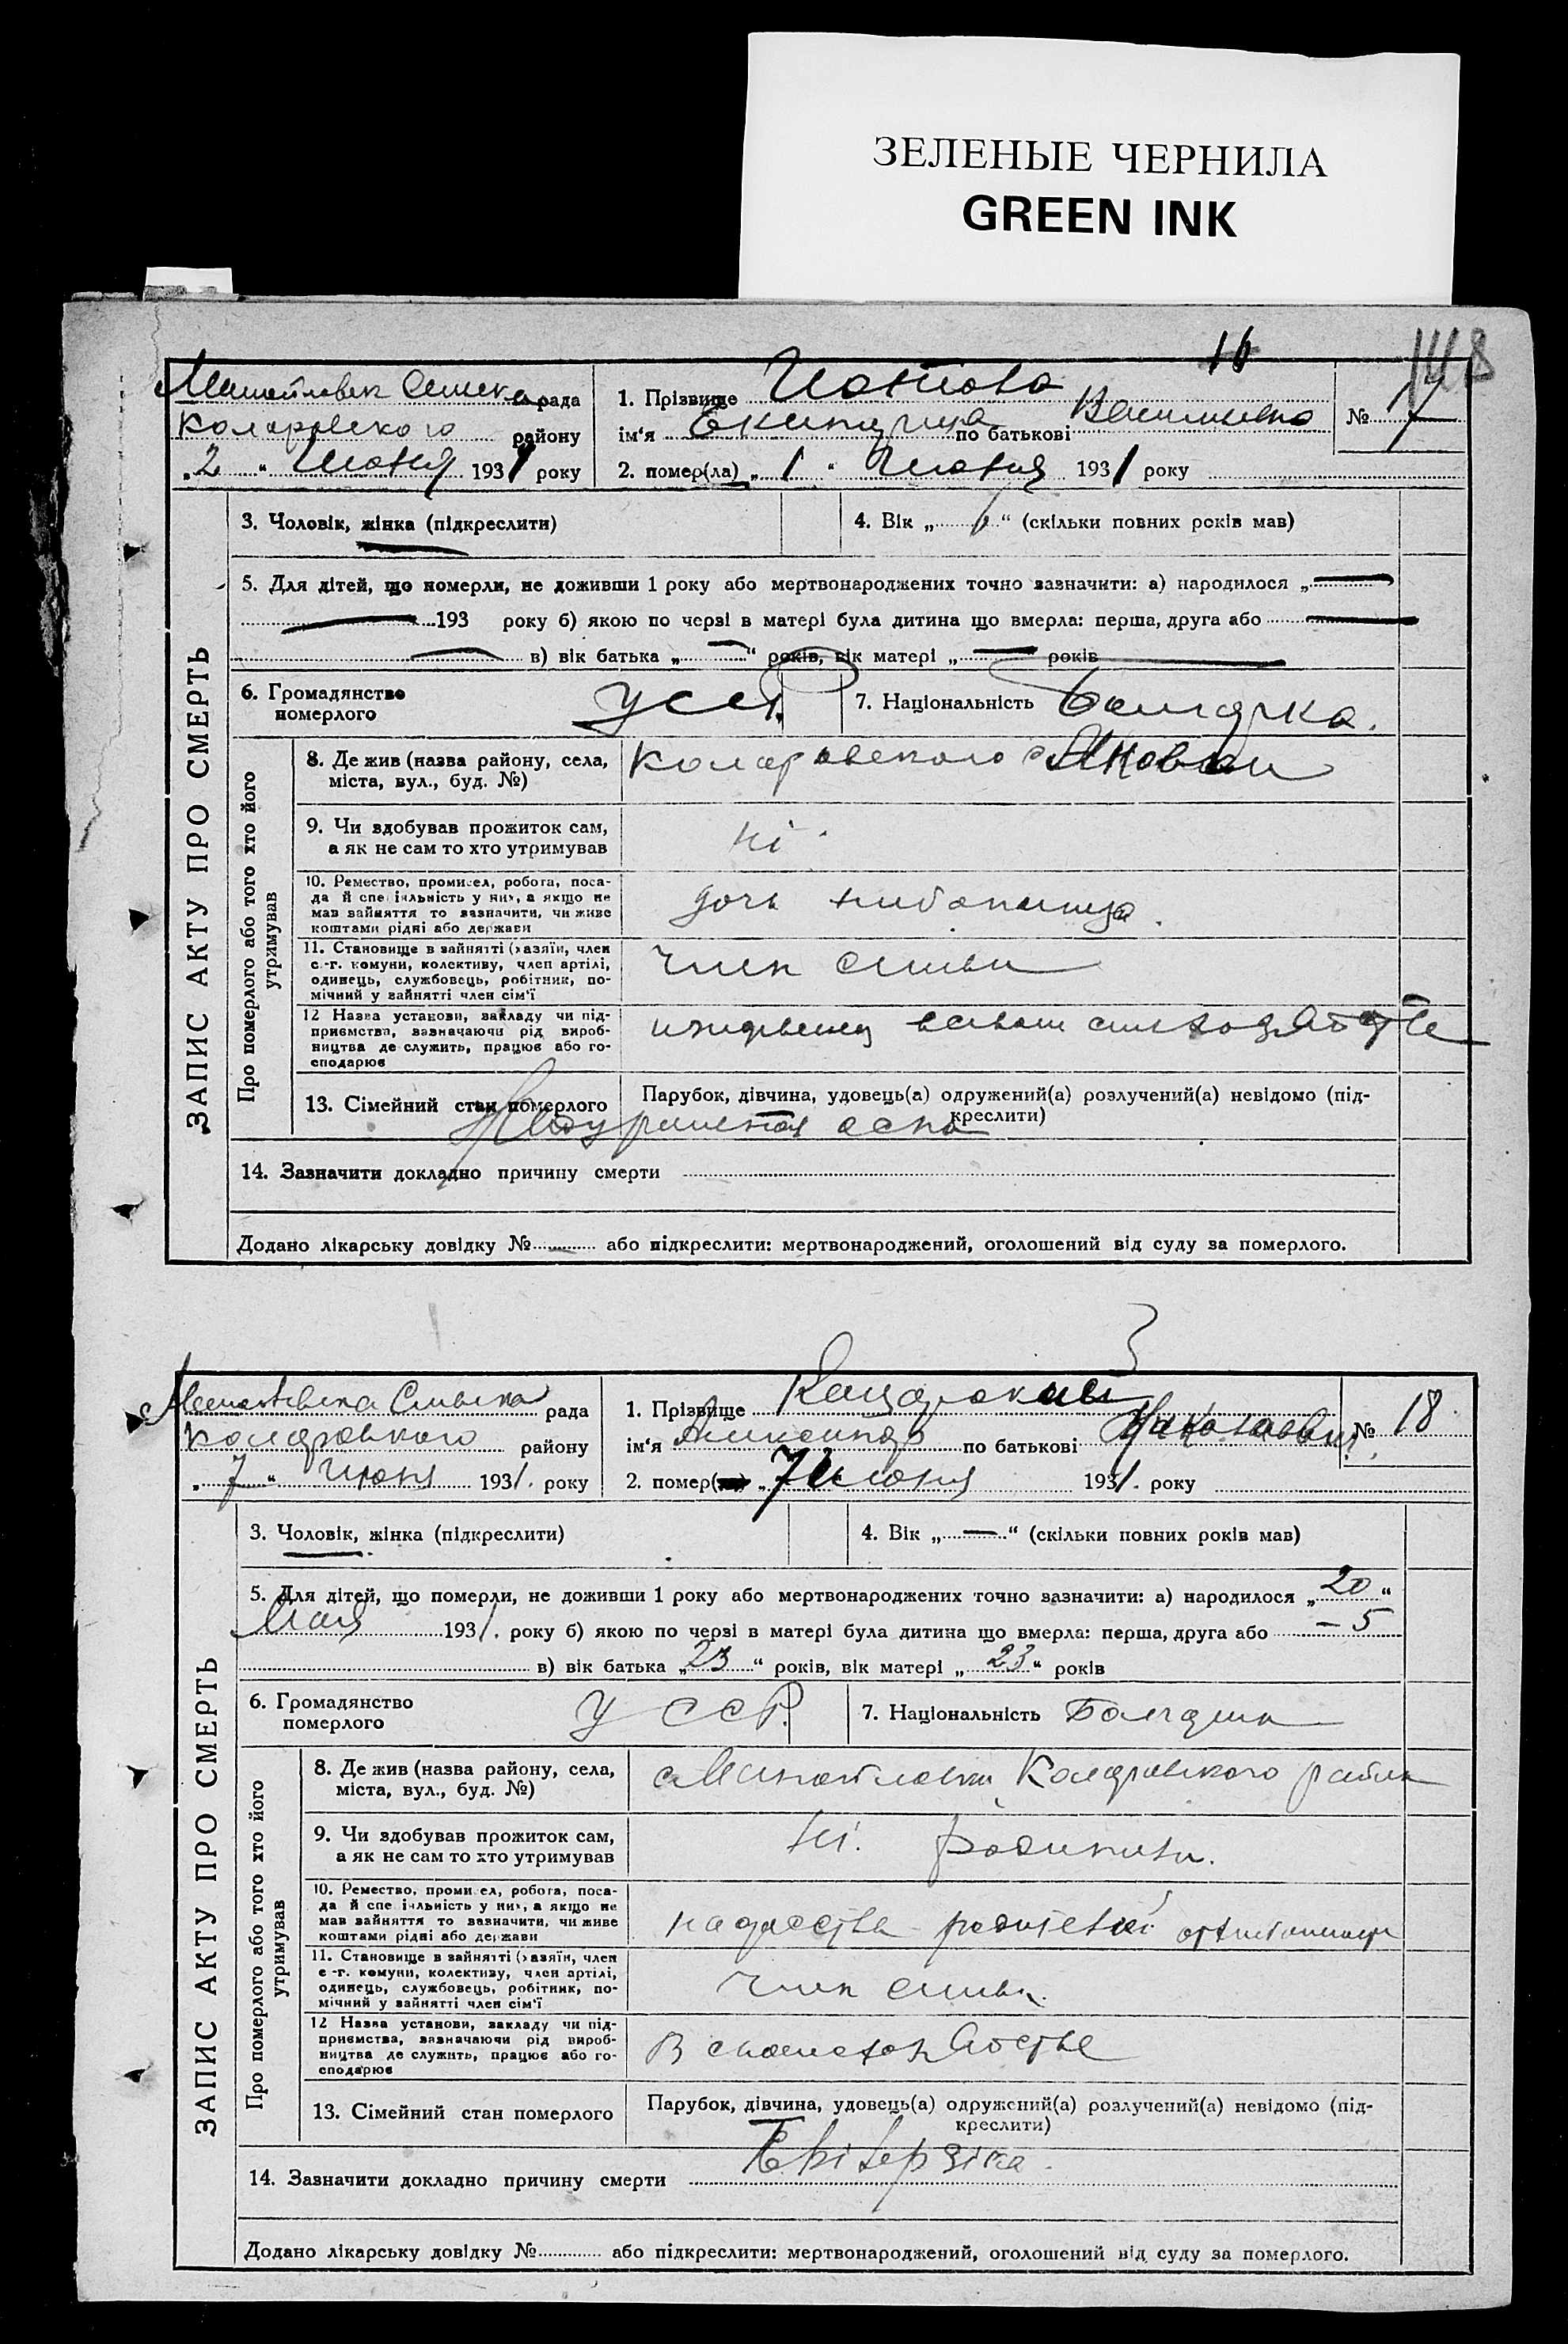 ЗЕЛЕНЫЕ ЧЕРНИЛА
GREEN INK
16
148
рада
Коларовского району
„2“ Июня 1931 року
1. Прізвище
ім‘я по батькові
№ 17
2. помер(ла) „1“ Июня 1931 року
ЗАПИС АКТУ ПРО СМЕРТЬ
3. Чоловік, жінка (підкреслити)
4. Вік „ “ (скільки повних років мав)
5. Для дітей, що номерли, не доживши 1 року або мертвонароджених точно зазначити: а) народилося „
193 року б) якою по черзі в матері була дитина що вмерла: перша, друга або
в) вік батька „ “ років, вік матері „ “ років
6. Громадянство
померлого
УССР.
7. Національність Болгарка.
Про померлого або того хто його
утримував
8. Де жив (назва району, села,
міста, вул., буд. №)
Коларовского
9. Чи здобував прожиток сам,
а як не сам то хто утримував
Ні
10. Ремество, промисел, робота, поса-
да й спеціяльність у них, а якщо не
мав зайняття то зазначити, чи живе
коштами рідні або держави
дочь хлибопашца.
11. Становище в зайнятті (хазяїн, член
с.-г. комуни, колективу, член артілі,
одинець, службовець, робітник, по-
мічний у зайнятті член сім‘ї
член симьи
12 Назва установи, закладу чи під-
приємства, зазначаючи рід вироб-
ництва де служить, працює або го-
сподарює
13. Сімейний стан померлого
Парубок, дівчина, удовець(а) одружений(а) розлучений(а) невідомо (під-
креслити)
Натуральная оспа
14. Зазначити докладно причину смерти
Додано лікарську довідку № або підкреслити: мертвонароджений, оголошений від суду за померлого.
рада
Коларовского району
„7“ Июня 1931. року
1. Прізвище
ім‘я Александр по батькові Николаевич.
№ 18
2. помер „7 Июня 1931. року
ЗАПИС АКТУ ПРО СМЕРТЬ
3. Чоловік, жінка (підкреслити)
4. Вік „—“ (скільки повних років мав)
5. Для дітей, що померли, не доживши 1 року або мертвонароджених точно зазначити: а) народилося „20“
Мая 1931. року б) якою по черзі в матері була дитина що вмерла: перша, друга або – 5
в) вік батька „23“ років, вік матері „23“ років
6. Громадянство
померлого
УССР.
7. Національність Болгарин
Про померлого або того хто його
утримував
8. Де жив (назва району, села,
міста, вул., буд. №)
Коларовского района
9. Чи здобував прожиток сам,
а як не сам то хто утримував
Ні.
10. Ремество, промисел, робота, поса-
да й спеціяльність у них, а якщо не
мав зайняття то зазначити, чи живе
коштами рідні або держави
родителей
11. Становище в зайнятті (хазяїн, член
с.-г. комуни, колективу, член артілі,
одинець, службовець, робітник, по-
мічний у зайнятті член сім‘ї
член симьи.
12 Назва установи, закладу чи під-
приємства, зазначаючи рід вироб-
ництва де служить, працює або го-
сподарює
13. Сімейний стан померлого
Парубок, дівчина, удовець(а) одружений(а) розлучений(а) невідомо (під-
креслити)
14. Зазначити докладно причину смерти
Додано лікарську довідку № або підкреслити: мертвонароджений, оголошений від суду за померлого.